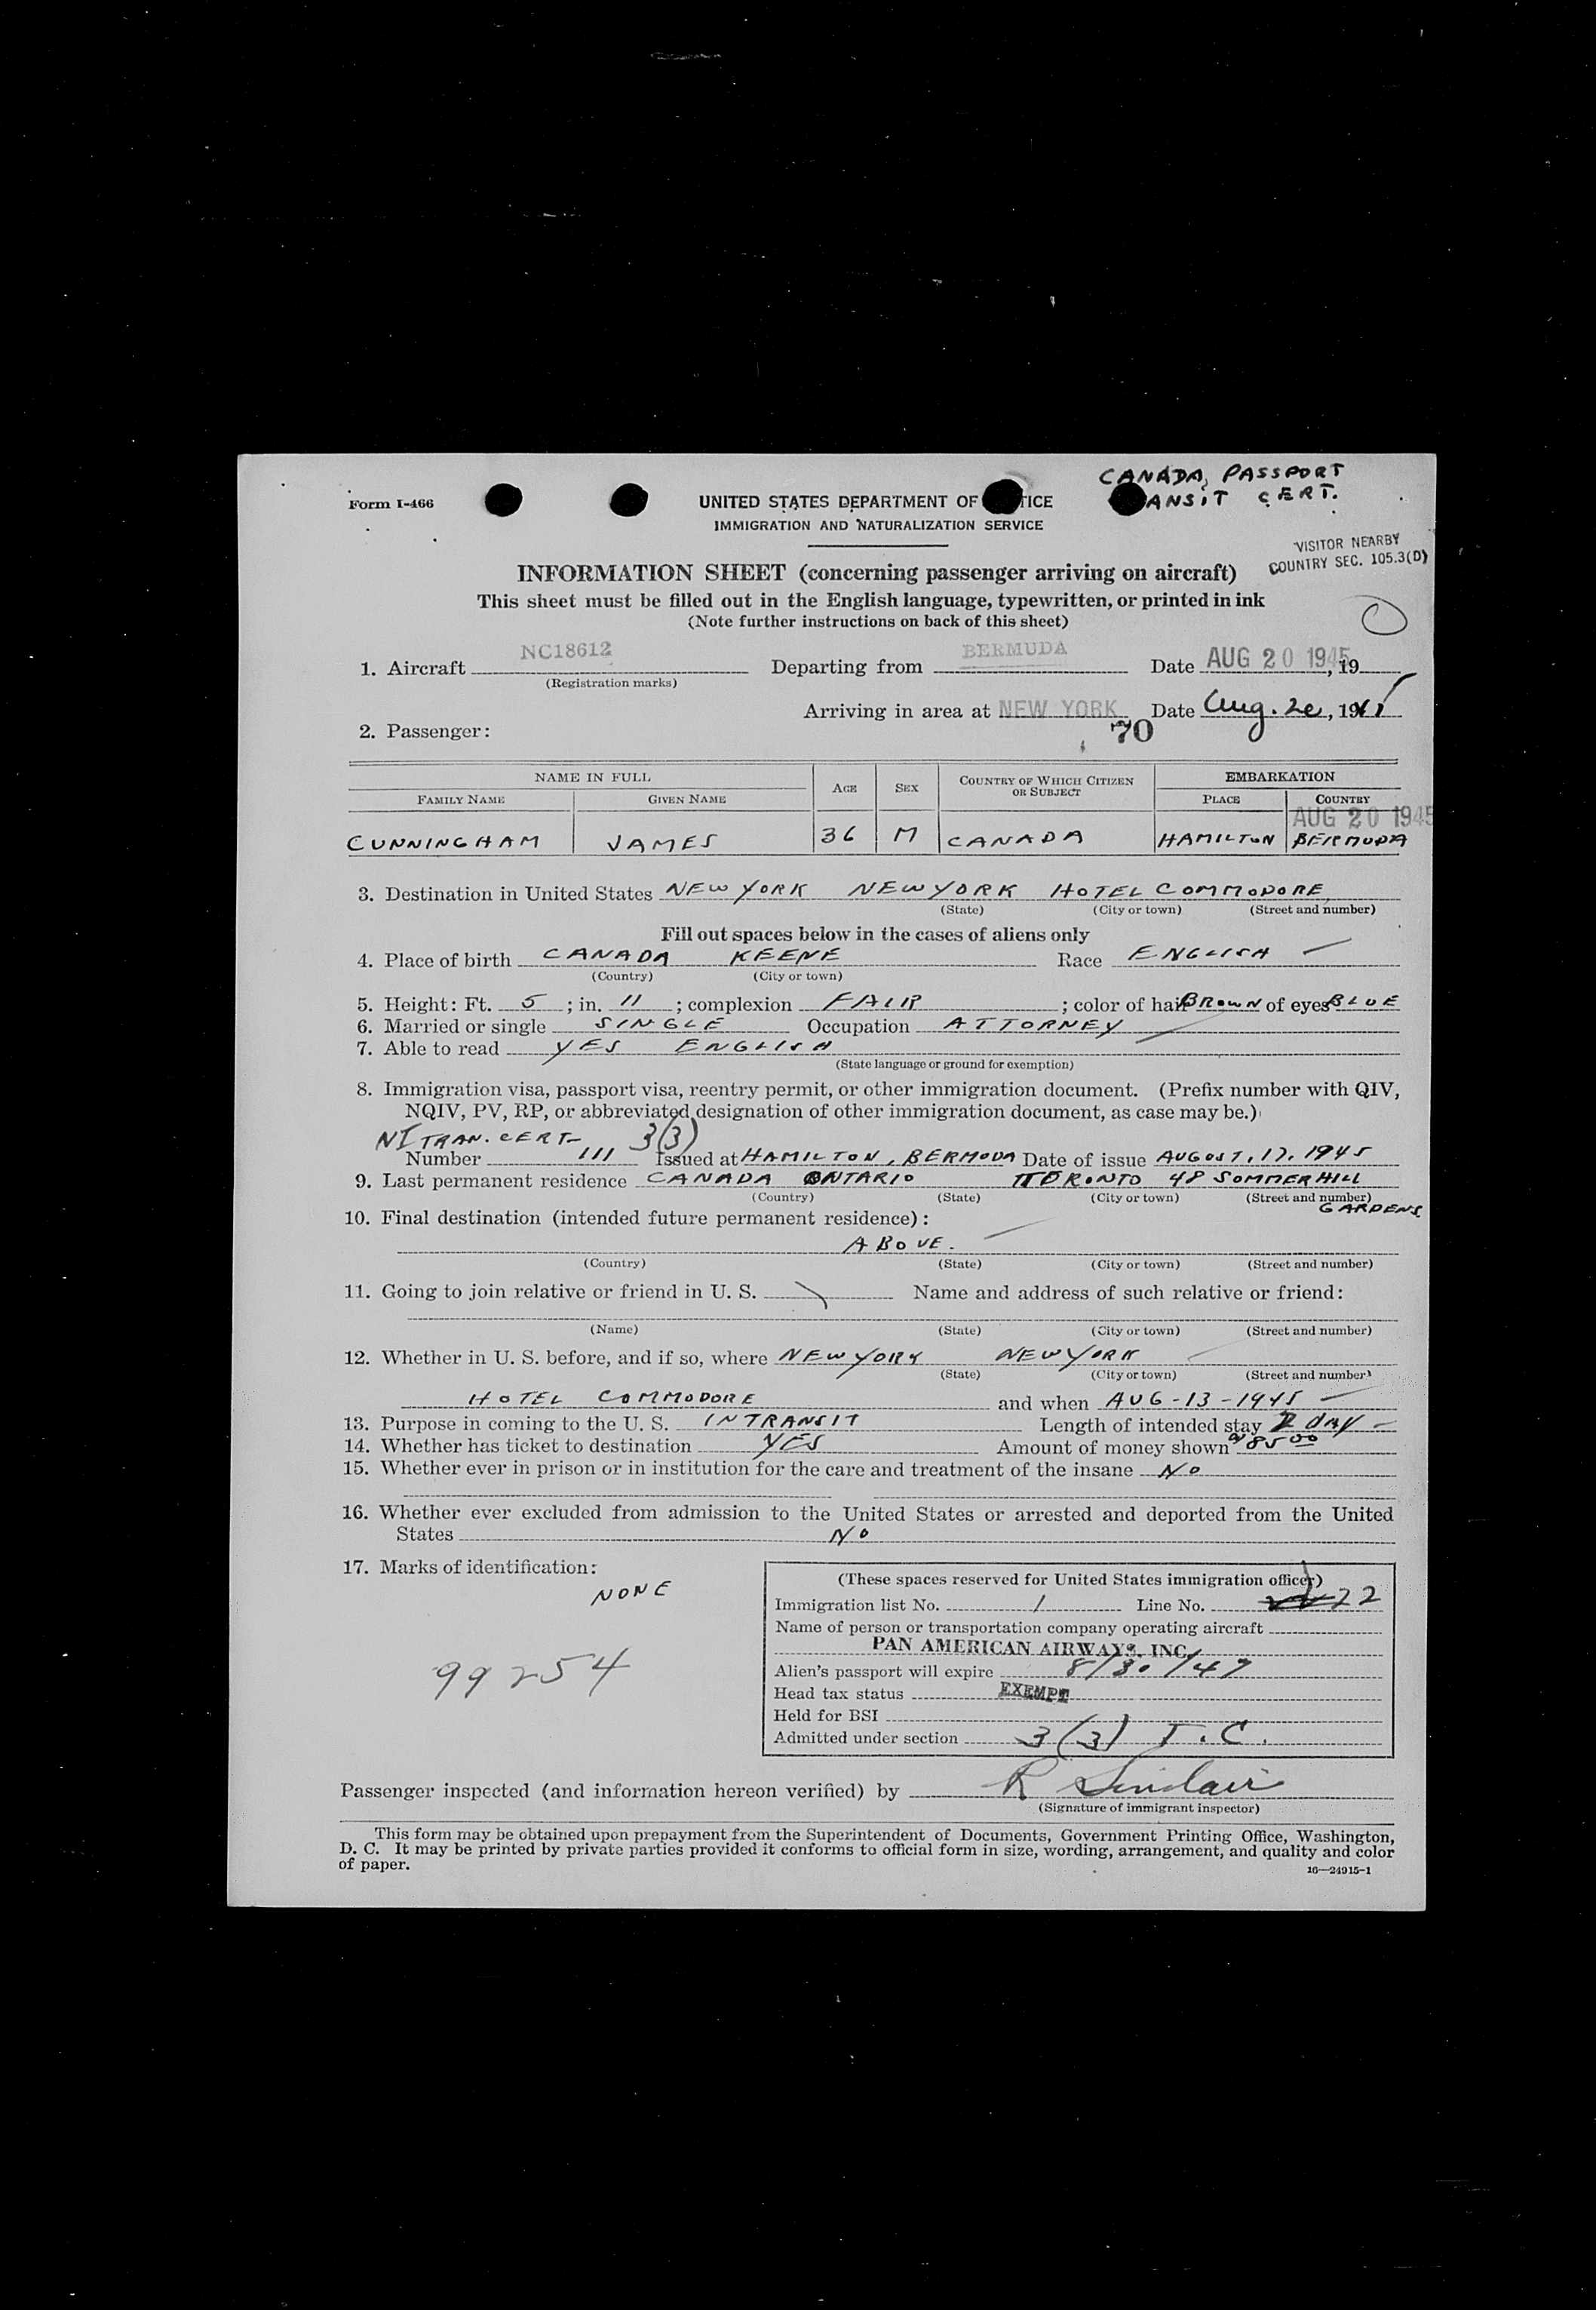 CANADA, PASSPORT
ANSIT CERT.
Form I-466
UNITED STATES DEPARTMENT OF TICE
IMMIGRATION AND NATURALIZATION SERVICE
VISITOR NEARBY
COUNTRY SEC. 105.3(D)
INFORMATION SHEET (concerning passenger arriving on aircraft)
This sheet must be filled out in the English language, typewritten, or printed in ink
(Note further instructions on back of this sheet)
1. Aircraft NC18612 Departing from BERMUDA Date AUG 20 1945, 19
(Registration marks)
Arriving in area at NEW YORK Date Aug. 20, 1945
2. Passenger: 70
NAME IN FULL AGE SEX COUNTRY OF WHICH CITIZEN OR SUBJECT EMBARKATION
FAMILY NAME GIVEN NAME PLACE COUNTRY
AUG 20 1945
CUNNINGHAM JAMES 36 M CANADA HAMILTON BERMUDA
3. Destination in United States NEW YORK NEW YORK HOTEL COMMODORE
(State) (City or town) (Street and number)
Fill out spaces below in the cases of aliens only
4. Place of birth CANADA KEENE Race ENGLISH
(Country) (City or town)
5. Height: Ft. 5 ; in. 11 ; complexion FAIR ; color of hair BROWN of eyes BLUE
6. Married or single SINGLE Occupation ATTORNEY
7. Able to read YES ENGLISH
(State language or ground for exemption)
8. Immigration visa, passport visa, reentry permit, or other immigration document. (Prefix number with QIV,
NQIV, PV, RP, or abbreviated designation of other immigration document, as case may be.)
NI TRAN. CERT- 3(3)
Number 111 Issued at HAMILTON, BERMUDA Date of issue AUGUST, 17, 1945
9. Last permanent residence CANADA ONTARIO TORONTO 48 SUMMERHILL
(Country) (State) (City or town) (Street and number)
GARDENS
10. Final destination (intended future permanent residence):
ABOVE.
(Country) (State) (City or town) (Street and number)
11. Going to join relative or friend in U. S. Name and address of such relative or friend:
(Name) (State) (City or town) (Street and number)
12. Whether in U. S. before, and if so, where NEW YORK NEW YORK
(State) (City or town) (Street and number)
HOTEL COMMODORE and when AUG-13-1945
13. Purpose in coming to the U. S. IN TRANSIT Length of intended stay 2 day
14. Whether has ticket to destination YES Amount of money shown 85 00
15. Whether ever in prison or in institution for the care and treatment of the insane NO
16. Whether ever excluded from admission to the United States or arrested and deported from the United
States NO
17. Marks of identification:
NONE
99254
(These spaces reserved for United States immigration officer)
Immigration list No. 1 Line No. 22
Name of person or transportation company operating aircraft
PAN AMERICAN AIRWAYS, INC.
Alien's passport will expire 8/30/47
Head tax status EXEMPT
Held for BSI
Admitted under section 3(3) T.C.
Passenger inspected (and information hereon verified) by R Sinclair
(Signature of immigrant inspector)
This form may be obtained upon prepayment from the Superintendent of Documents, Government Printing Office, Washington,
D. C. It may be printed by private parties provided it conforms to official form in size, wording, arrangement, and quality and color
of paper.
16—24915-1